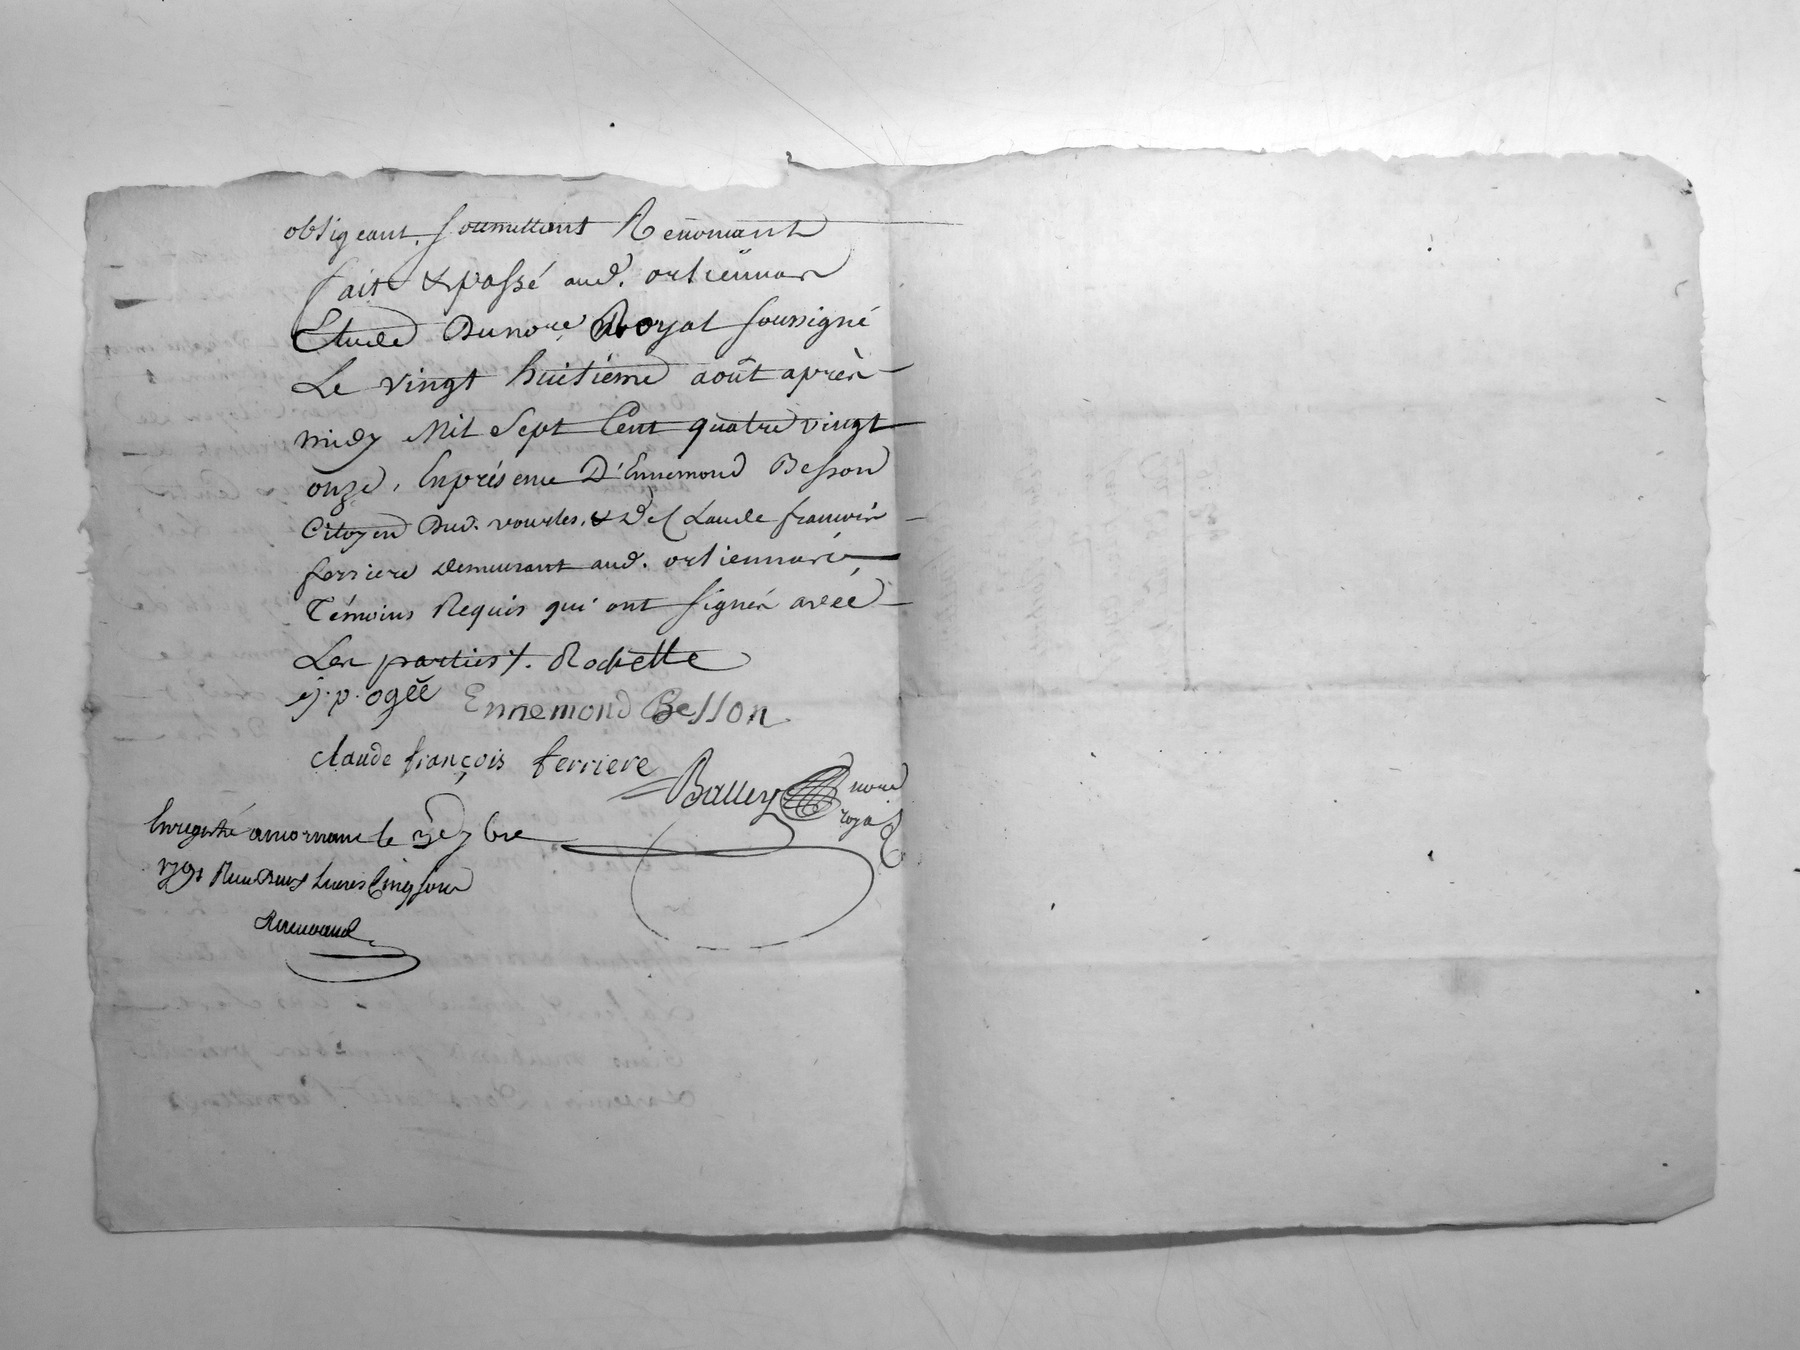 obligeant, soumettant Renonçant
fait & passé aud. orliennas
Etude Du nore. Royal soussigné
Le vingt huitiéme août après
midy Mil Sept Cent quatre vingt
onze, En présence D'Ennemond Besson
Citoyen Dud. vourles, & De Claude françois
ferriere demeurant aud. orliennas,
Témoins Requis qui ont signés avec
Les parties. Rochette
j. p. ogéé Ennemond Besson
claude françois ferriere
Balley nore royal
Enregistré a mornant le 7bre
1791 Reçu Deux Livres Cinq sous